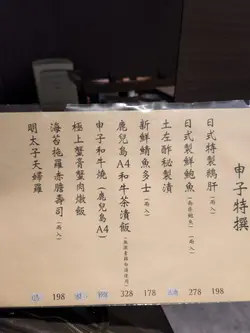 申子特撰
日式特製鵝肝(兩入) 198
日式製鮮鮑魚 278
土左酢秘製漬
新鮮鯖魚多士(兩入) 178
鹿兒島A4和牛茶漬飯 328
申子和牛燒(鹿兒島A4)
極上蟹膏蟹肉燉飯
海苔拖羅赤膽壽司(兩入) 198
明太子天婦羅